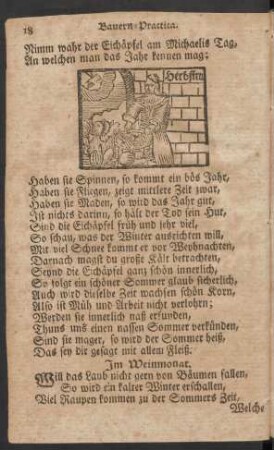 18 Bauern-Practica.
Nimm wahr der Eichäpfel am Michaelis Tag,
An welchen man das Jahr kennen mag:
Herbstm
Haben sie Spinnen, so kommt ein bös Jahr,
Haben sie Fliegen, zeigt mittlere Zeit zwar,
Haben sie Maden, so wird das Jahr gut,
Ist nichts darinn, so hält der Tod sein Hut,
Sind die Eichäpfel früh und sehr viel,
So schau, was der Winter ausrichten will,
Mit viel Schnee kommt er vor Weyhnachten,
Darnach magst du große Kält betrachten,
Seynd die Eichäpfel ganz schön innerlich,
So folgt ein schöner Sommer glaub sicherlich,
Auch wird dieselbe Zeit wachsen schön Korn,
Also ist Müh und Arbeit nicht verlohrn;
Werden sie innerlich naß erfunden,
Thuns uns einen nassen Sommer verkünden,
Sind sie mager, so wird der Sommer heiß,
Das sey dir gesagt mit allem Fleiß.
Im Weinmonat.
Will das Laub nicht gern von Bäumen fallen,
So wird ein kalter Winter erschallen,
Viel Raupen kommen zu der Sommers Zeit,
Welche